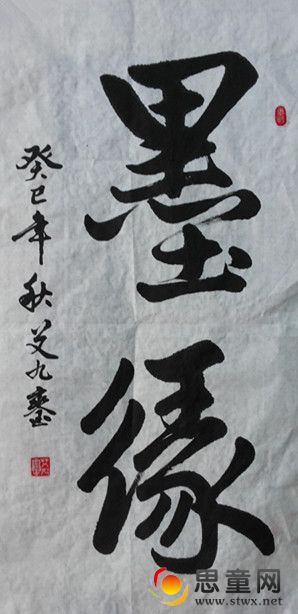 墨缘
癸巳年秋艾九
思童网
www.stwx.net